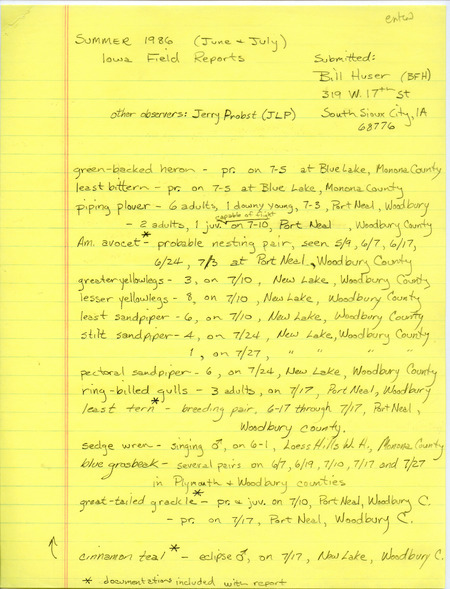 entered
SUMMER 1986 (June & July)
Iowa Field Reports
Submitted:
Bill Huser (BFH)
319 W. 17th St
South Sioux City, IA
68776
other observers: Jerry Probst (JLP)
green-backed heron - pr. on 7-5 at Blue Lake, Monona County
least bittern - pr. on 7-5 at Blue Lake, Monona County
piping plover - 6 adults, 1 downy young, 7-3, Port Neal, Woodbury
capable of flight
- 2 adults, 1 juv. on 7-10, Port Neal, Woodbury County
Am. avocet* - probable nesting pair, seen 5/9, 6/7, 6/17,
6/24, 7/3 at Port Neal, Woodbury County
greater yellowlegs - 3, on 7/10, New Lake, Woodbury County
lesser yellowlegs - 8, on 7/10, New Lake, Woodbury County
least sandpiper - 6, on 7/10, New Lake, Woodbury County
stilt sandpiper - 4, on 7/24, New Lake, Woodbury County
1, on 7/27, " " " "
pectoral sandpiper - 6, on 7/24, New Lake, Woodbury County
ring-billed gulls - 3 adults, on 7/17, Port Neal, Woodbury
least tern* - breeding pair, 6-17 through 7/17, Port Neal,
Woodbury county.
sedge wren - singing ♂, on 6-1, Loess Hills W.A., Monona County
blue grosbeak - several pairs on 6/7, 6/19, 7/10, 7/17 and 7/27
in Plymouth & Woodbury counties
great-tailed grackle* - pr. & juv. on 7/10, Port Neal, Woodbury C.
- pr. on 7/17, Port Neal, Woodbury C.
cinnamon teal* - eclipse ♂, on 7/17, New Lake, Woodbury C.
* documentations included with report